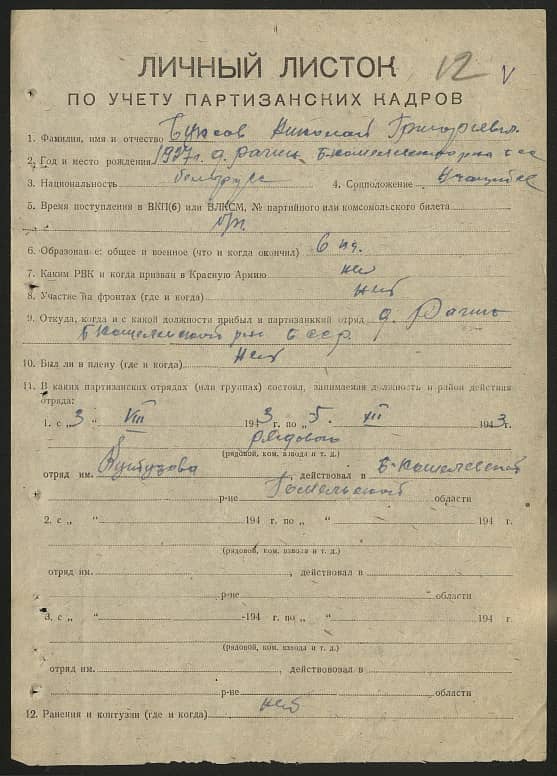 12 V
ЛИЧНЫЙ ЛИСТОК
ПО УЧЕТУ ПАРТИЗАНСКИХ КАДРОВ
1. Фамилия, имя и отчество Николай Григорьевич
2. Год и место рождения 1927 г. д.
3. Национальность белорус 4. Соцположение Учащийся
5. Время поступления в ВКП(б) или ВЛКСМ, № партийного или комсомольского билета
б/п.
6. Образован е: общее и военное (что и когда окончил) 6 кл.
7. Каким РВК и когда призван в Красную Армию нет
8. Участие на фронтах (где и когда) нет
9. Откуда, когда и с какой должности прибыл в партизанккий отряд д.
Б Кошелевской р-н БССР
10. Был ли в плену (где и когда) нет
11. В каких партизанских отрядах (или группах) состоял, занимаемая должность и район действия
отряда:
1. с „3 " VIII 1943 г. по „5 . XII 1943 г.
рядовой
(рядовой, ком. взвода и т. д.)
отряд им. Кутузова , действовал в Б-Кошелевской
р-не Гомельской области
2. с „ " 194 г. по „ " 194 г.
(рядовой, ком. взвода и т. д.)
отряд им. , действовал в
р-не области
3. с „ " -194 г. по „ " 194 г.
(рядовой, ком. взвода и т. д.)
отряд им. , действововал в
р-не области
12. Ранения и контузии (где и когда) нет